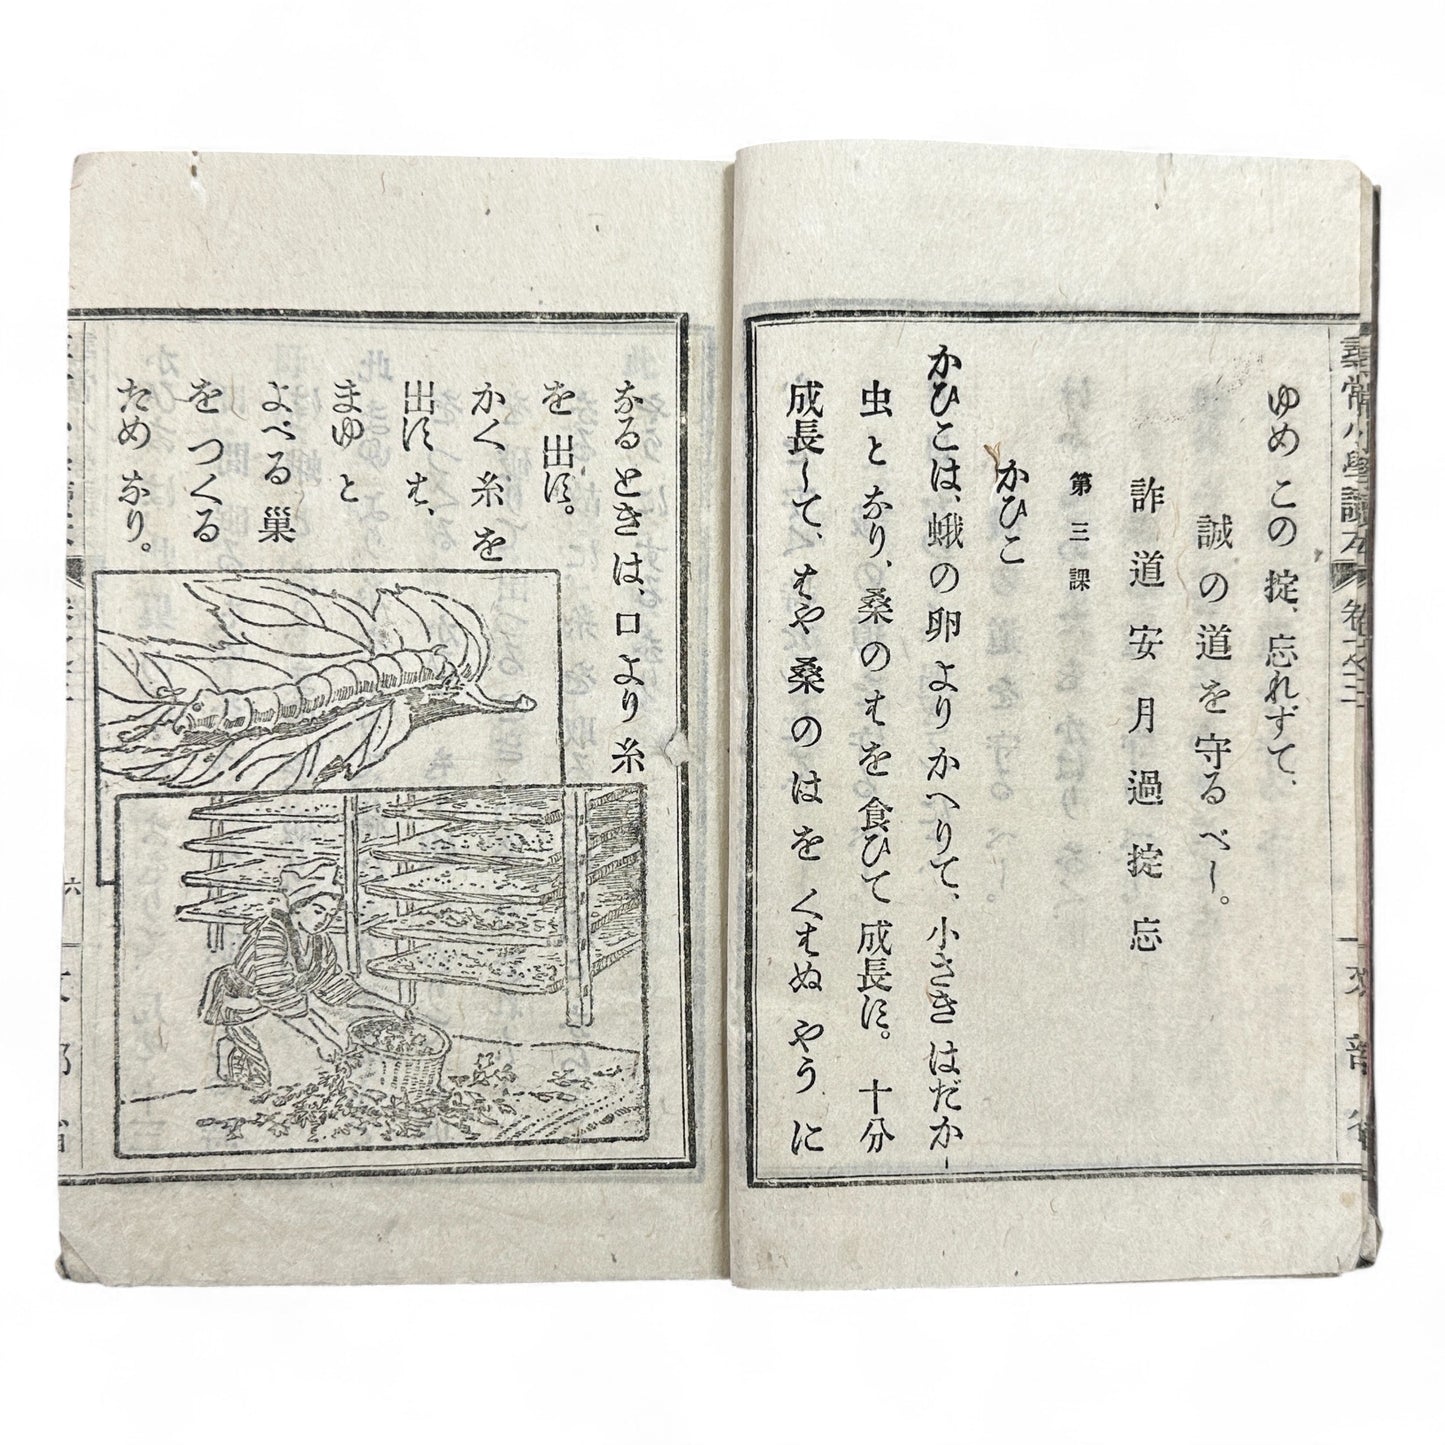 尋常小學讀本 卷之三 文部省
ゆめ この 掟、忘れずて、
誠の道を守るべし。
詐 道 安 月 過 掟 忘
第三課
かひこ
かひこは、蛾の卵よりかへりて、小さきはだか
虫となり、桑のはを食ひて成長す。十分
成長して、はや桑のはをくはぬやうに
なるときは、口より糸
を出す。
かく糸を
出すは、
まゆと
よべる巣
をつくる
ためなり。
六